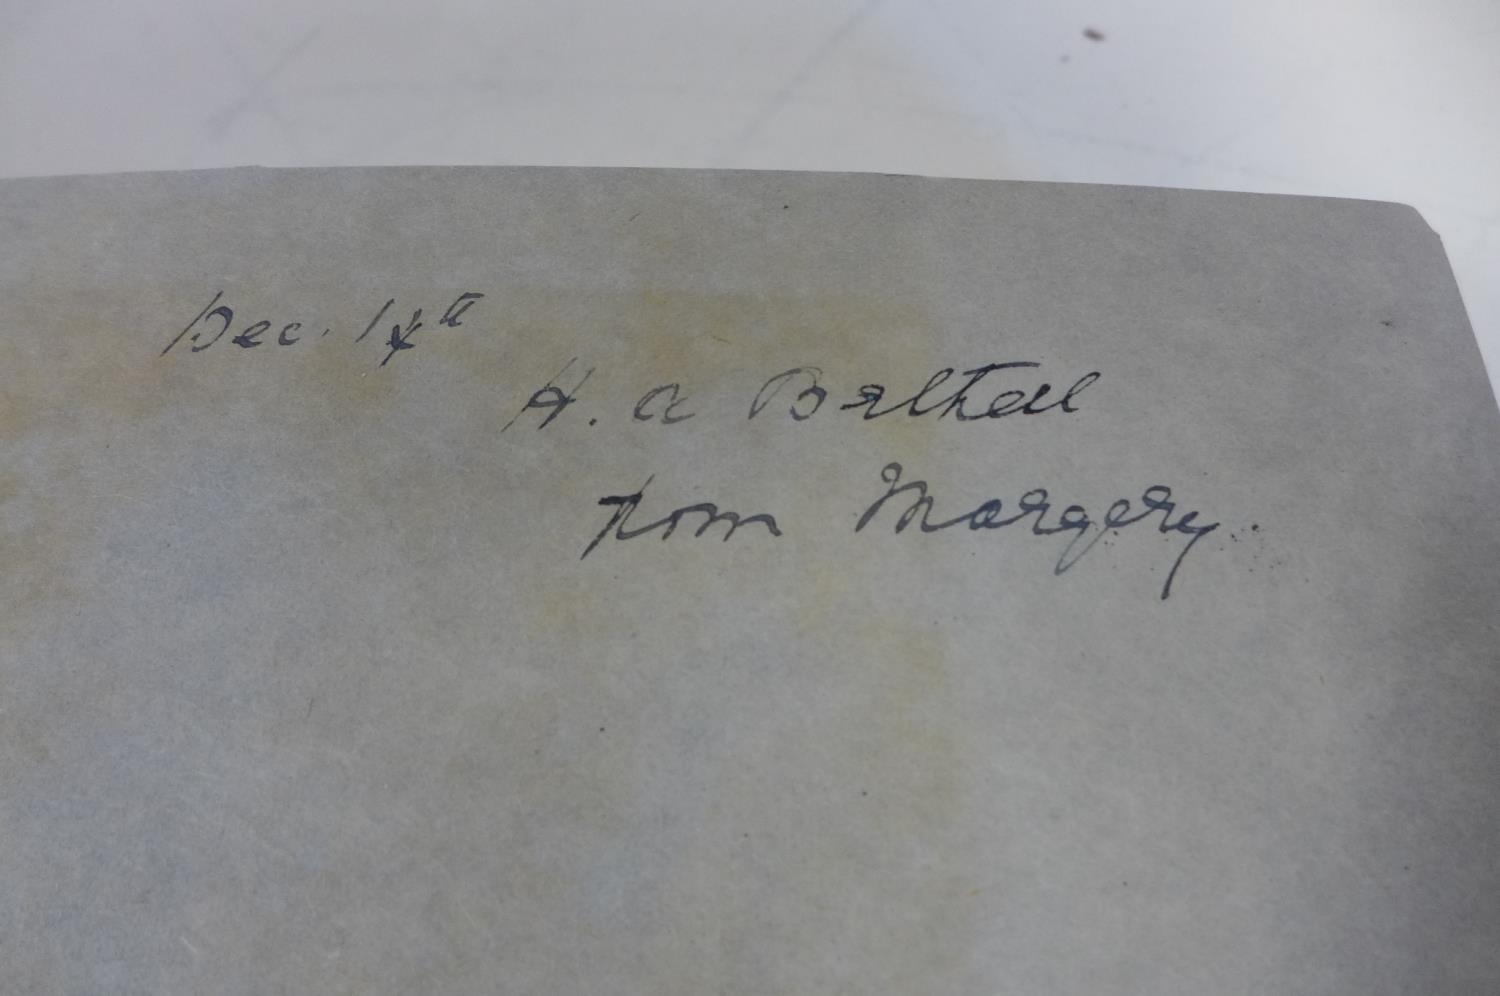 Dec. 14th
H. A
from Margery.